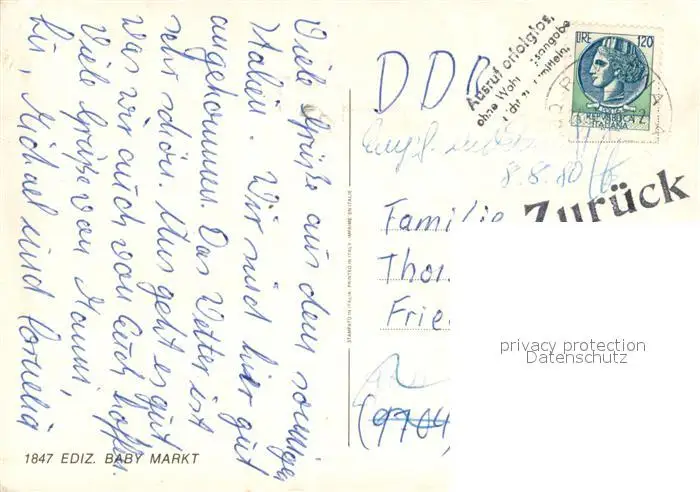 Viele Grüße aus dem sonnigen
Italien. Wir sind hier gut
angekommen. Das Wetter ist
sehr schön. Uns geht es gut
was wir auch von Euch hoffen.
Viele Grüße von Manni,
Michael und Cornelia
1847 EDIZ. BABY MARKT
STAMPATO IN ITALIA PRINTED IN ITALY IMPRIMÉ EN ITALIE
DDR
Ausruf erfolglos,
ohne
LIRE 120
REPUBBLICA
ITALIANA
8.8.80
Zurück
Familie
Thor
Frie
(9704)
privacy protection
Datenschutz